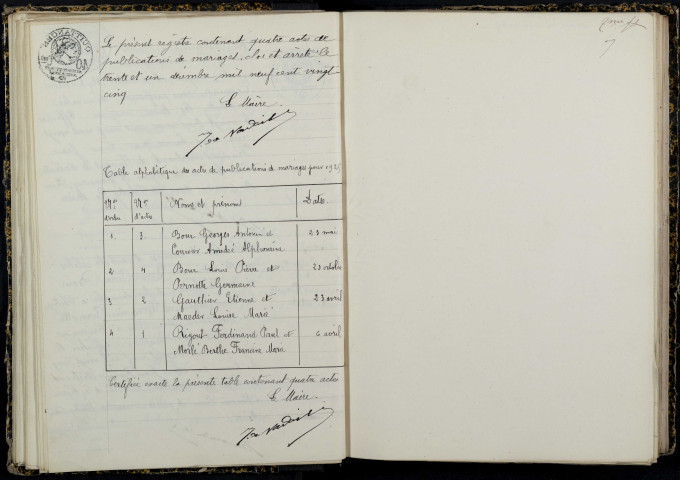 Le présent registre contenant quatre actes de
publications de mariages, clos et arrêté le
trente et un décembre mil neuf cent vingt-
cinq
Le Maire.
Table alphabétique des actes de publications de mariages pour 1925
Nos ordre Nos d'actes Noms et prénoms Dates
1 3 Bour Georges Antonin et 23 mai
Amédée Alphonsine
2 4 Bour Louis Pierre et 23 octobre
Pernotte Germaine
3 2 Gauthier Etienne et 23 avril
Maeder Louise Marie
4 1 Rigout Ferdinand Paul et 4 avril
Morlé Berthe Francine Marie
Certifiée exacte la présente table contenant quatre actes
Le Maire.